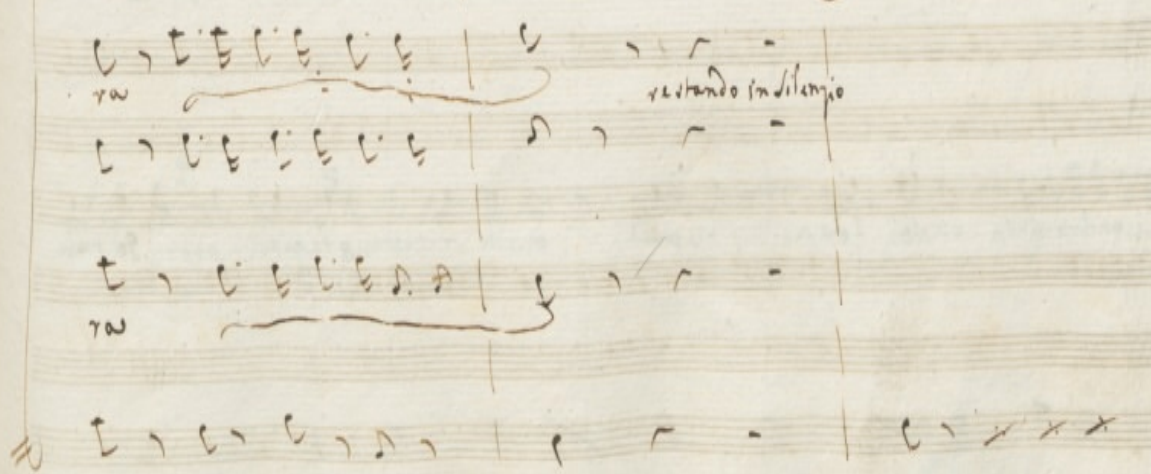 ra
restando in silenzio
ra